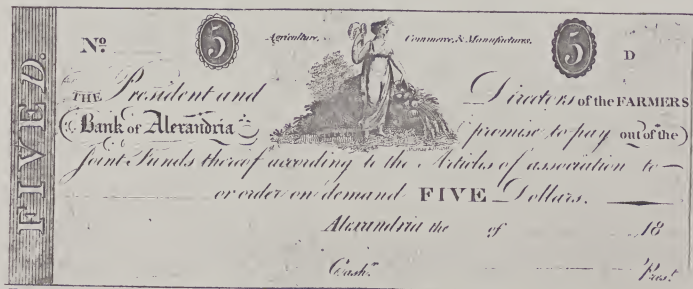 FIVE D.
Nº 5 Agriculture, Commerce, & Manufactures. 5 D
THE President and Directors of the FARMERS
Bank of Alexandria promise to pay out of the
Joint Funds thereof according to the Articles of association to
or order on demand FIVE Dollars.
Alexandria the of 18
Cash.r Pres.t